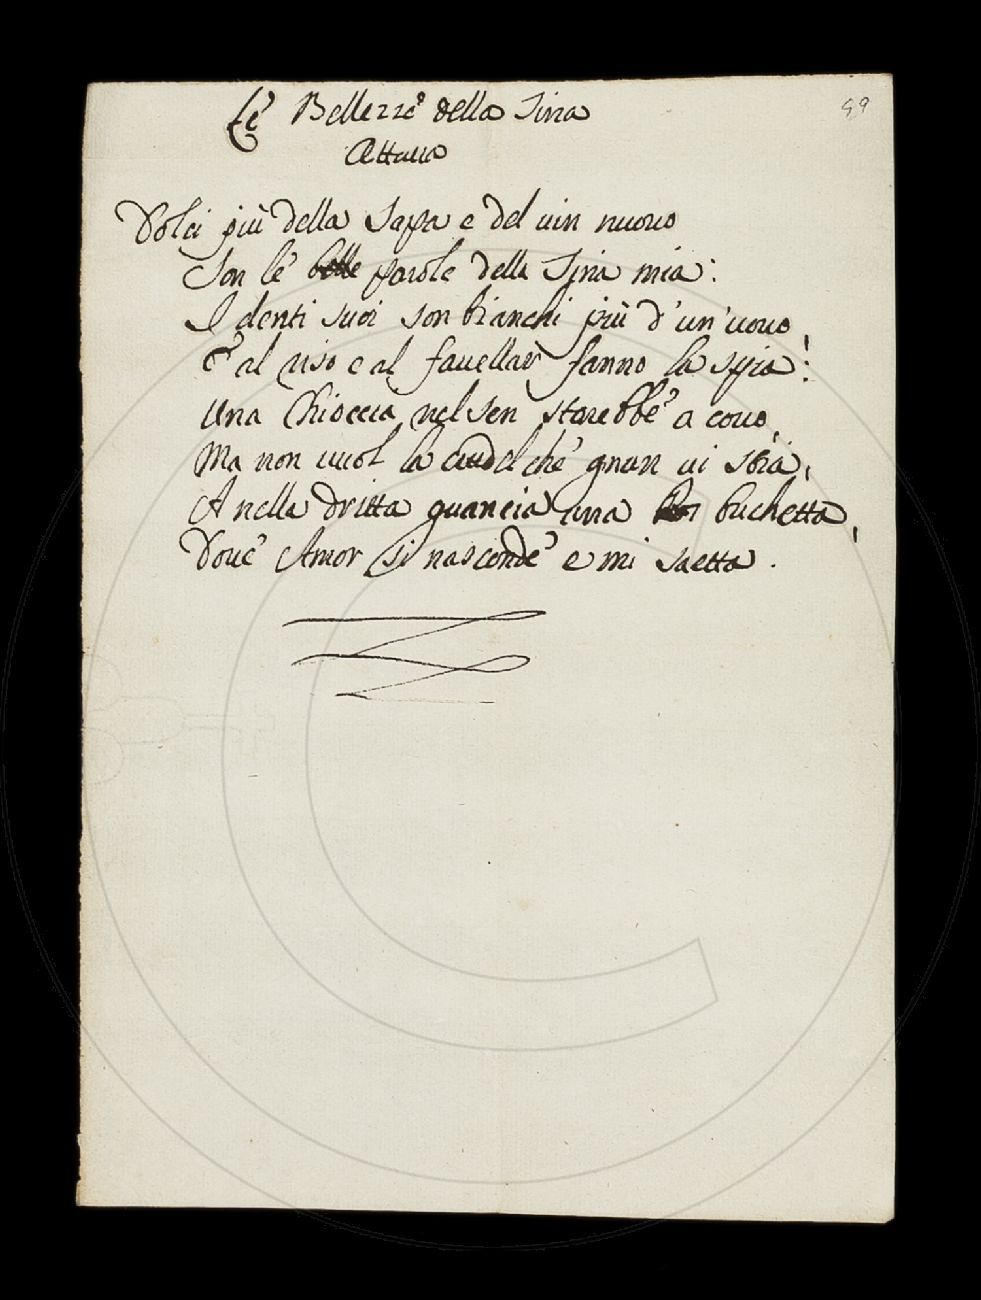 59
Le Bellezze della Tina
Ottava
Dolci più della Sapa e del vin nuovo
Son le belle parole della Tina mia:
I denti suoi son bianchi più d'un'uovo,
E al riso e al favellar fanno la spia:
Una Chioccia nel sen starebbe a covo,
Ma non vuol la crudel che gnun vi stia,
A nella dritta guancia una buchetta,
Dove Amor si nasconde e mi saetta.